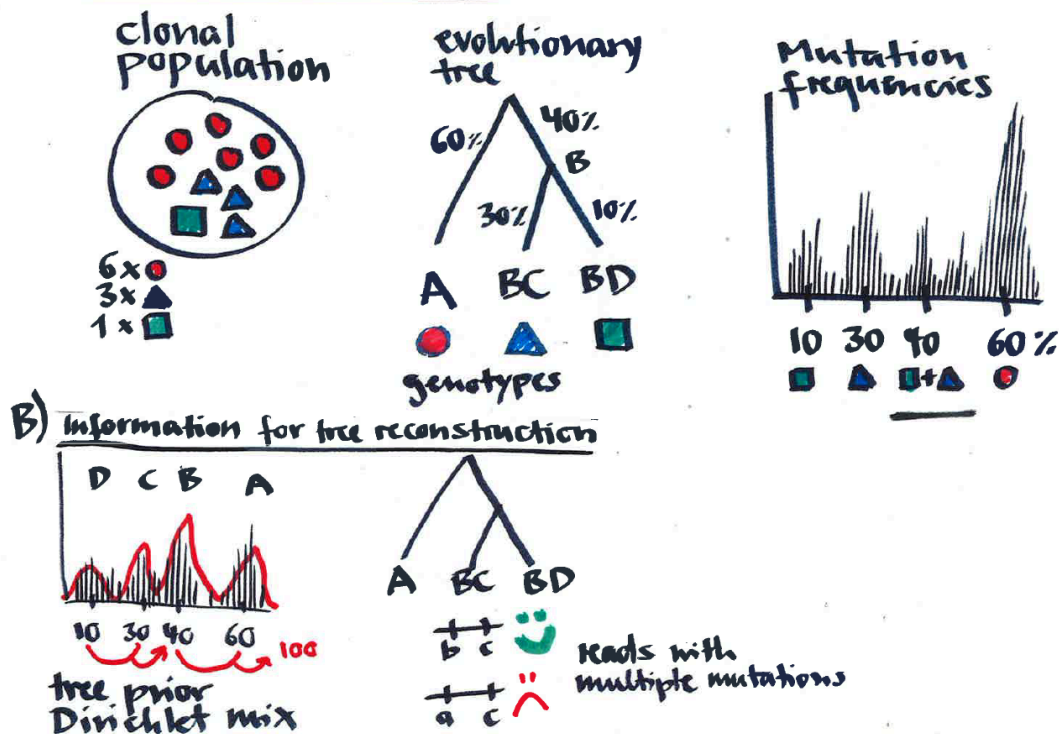 clonal
population
6x
3x
1x
evolutionary
tree
60%
40%
B
30%
10%
A BC BD
genotypes
Mutation
frequencies
10 30 40 60%
+
B) Information for tree reconstruction
D C B A
10 30 40 60 100
tree prior
Dirichlet mix
A BC BD
b c
a c
reads with
multiple mutations